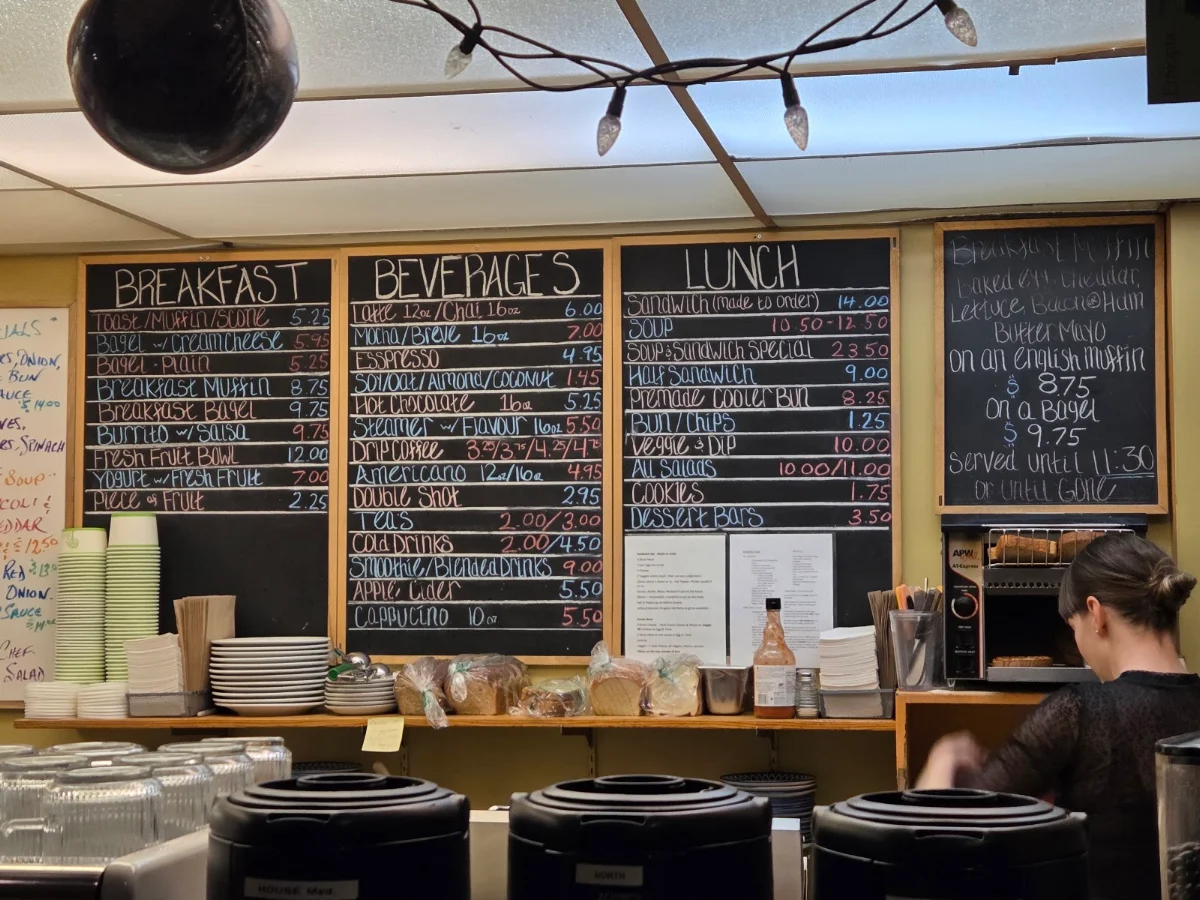 BREAKFAST
TOAST/MUFFIN/SCONE 5.25
Bagel w/ creamcheese 5.95
Bagel - Plain 5.25
Breakfast Muffin 8.75
Breakfast Bagel 9.75
Burrito w/ Salsa 9.75
Fresh Fruit Bowl 12.00
Yogurt w/ Fresh Fruit 7.00
Piece of Fruit 2.25
BEVERAGES
Latte 12oz/Chai, 16oz 6.00
Mocha/Breve 16oz 7.00
ESSPRESSO 4.95
Soy/Oat/Almond/Coconut 1.45
Hot Chocolate 16oz 5.25
Steamer w/ Flavour 16oz 5.50
DripCoffee 3.25/3.75/4.25/4.75
Americano 12oz/16oz 4.95
Double Shot 2.95
Teas 2.00/3.00
Cold Drinks 2.00/4.50
Smoothie/Blended Drinks 9.00
Apple Cider 5.50
Cappucino 10oz 5.50
LUNCH
Sandwich (made to order) 14.00
SOUP 10.50-12.50
Soup & Sandwich Special 23.50
Half Sandwich 9.00
Premade Cooler Bun 8.25
Bun/Chips 1.25
Veggie & Dip 10.00
All Salads 10.00/11.00
Cookies 1.75
Dessert Bars 3.50
Breakfast Muffin
Baked egg, cheddar,
Lettuce, Bacon or Ham
Butter Mayo
on an english muffin
$ 8.75
on a Bagel
$ 9.75
Served until 11:30
or until Gone
ONION,
BUN
$14.00
SPINACH
SOUP
$12.50
RED
ONION.
SAUCE
CHEF
SALAD
APW
AT-Express
HOUSE Med.
NORTH